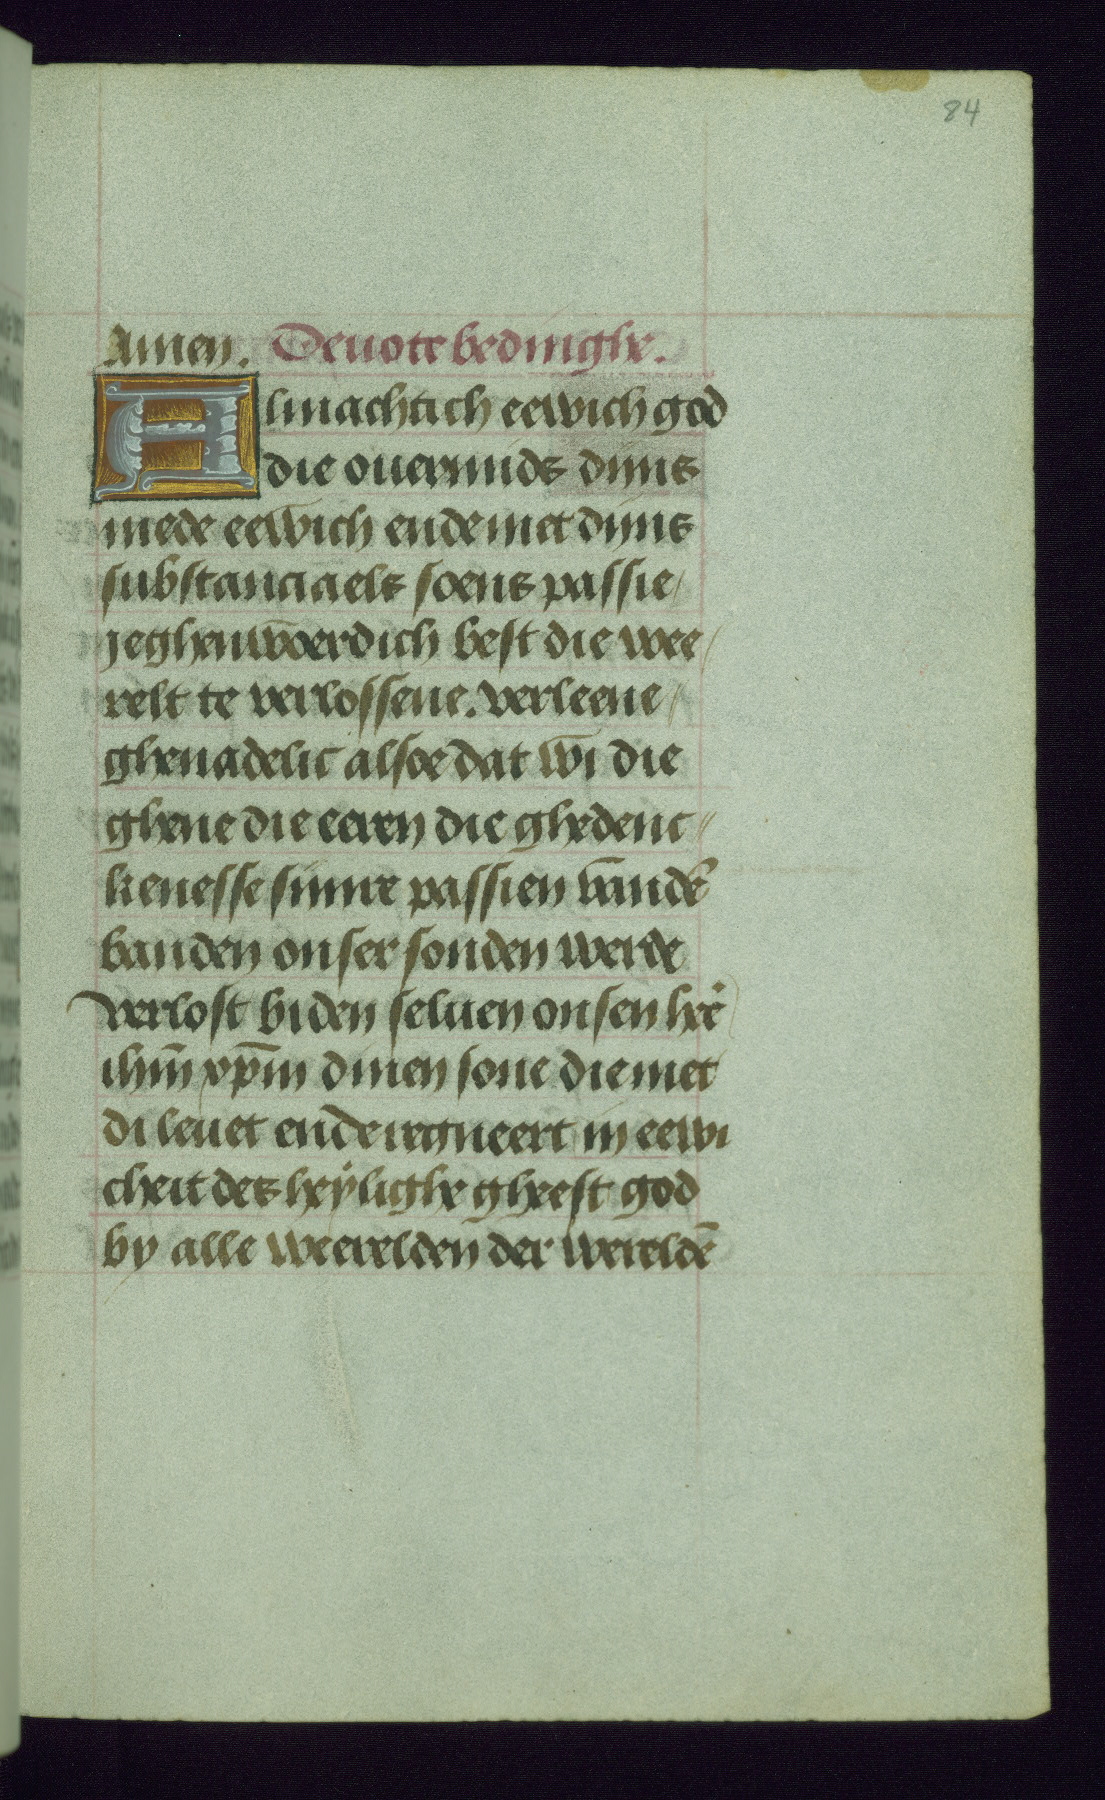 84
Amen. Deuote bedinghe.
Almachtich eewich god
die ouermids dijns
mede eewich ende met dijns
substanciaels soens passie
jeghenwoerdich best die wee
relt te verlossene. verleene
ghenadelic alsoe dat wi die
ghene die eeren die ghedenc
kenesse sijnre passien vandē
banden onser sonden werde
verlost bi den seluen onsen hēr
ihm̄ xp̄m dinen sone die met
di leuet ende regneert in eewi
cheit des heÿlighe gheest god
by alle weerelden der wereldē